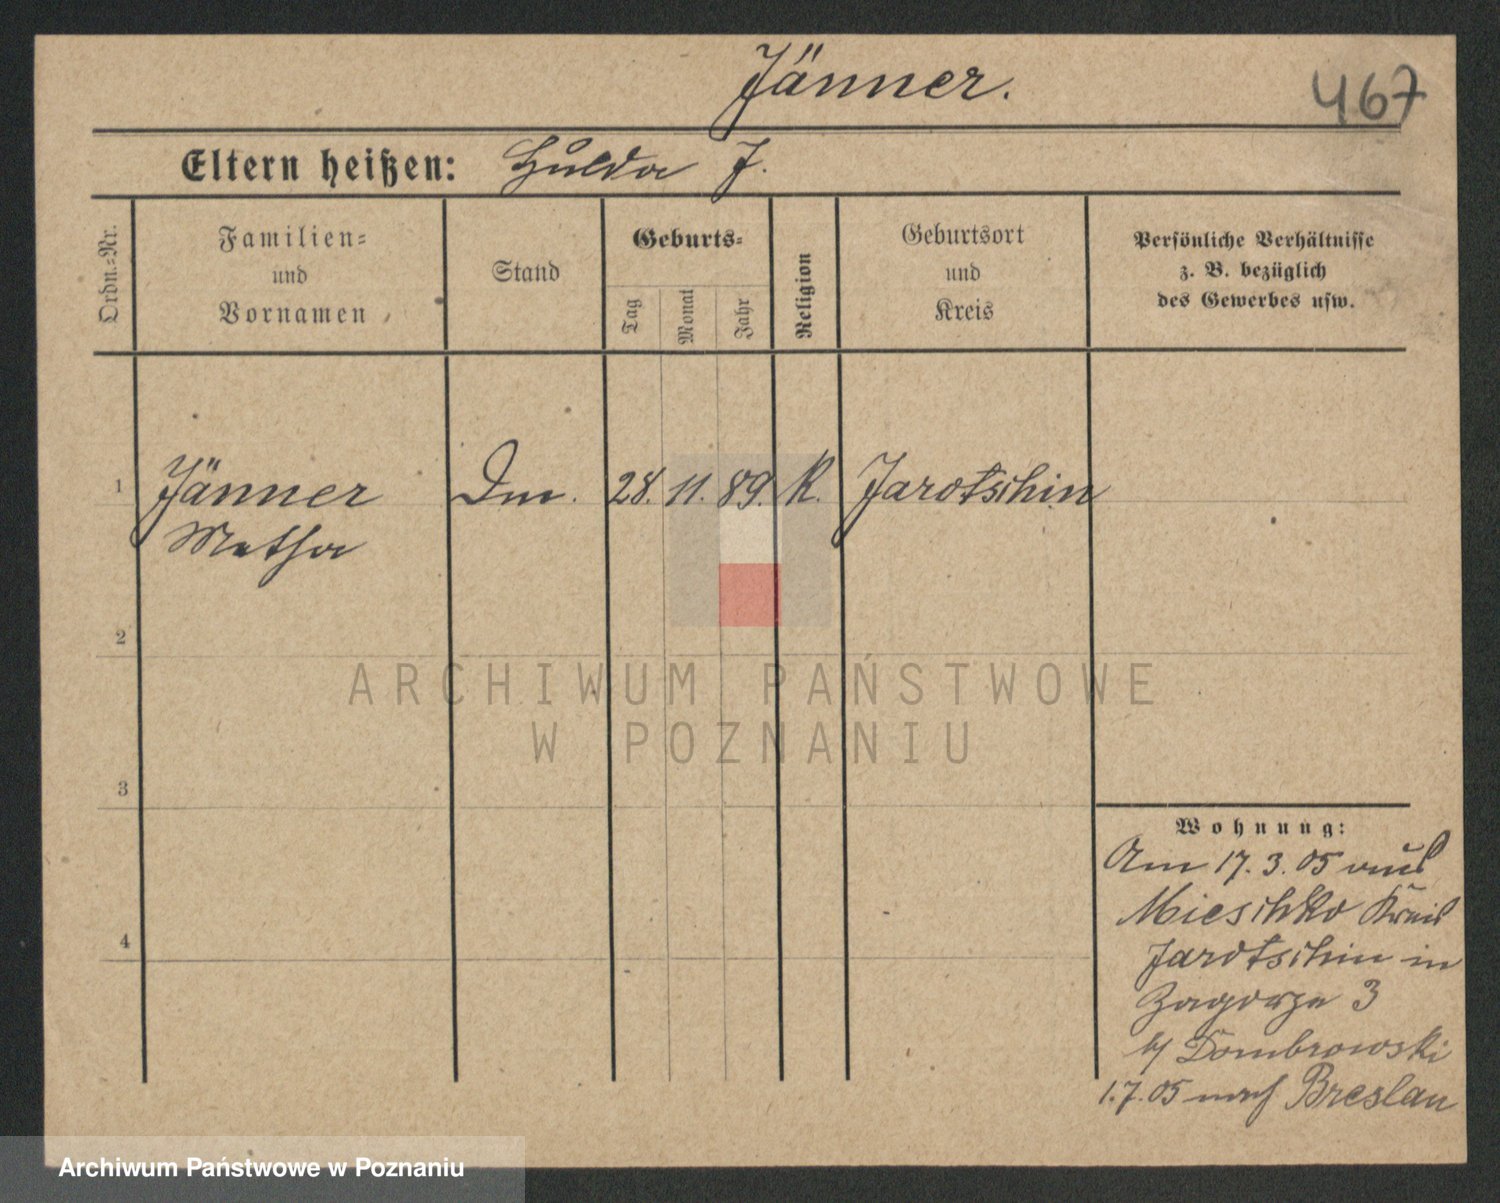 Jänner.
467
Eltern heißen: Hulda J.
Ordn.-Nr.
Familien-
und
Vornamen
Stand
Geburts-
Tag
Monat
Jahr
Religion
Geburtsort
und
Kreis
Persönliche Verhältnisse
z. B. bezüglich
des Gewerbes usw.
1 Jänner Dm. 28. 11. 89. K. Jarotschin
Metha
2
3
4
Wohnung:
Am 17.3.05 aus
Mieschko Kreis
Jarotschin in
Zagorze 3
b/ Dombrowski
1.7.05 nach Breslau
ARCHIWUM PAŃSTWOWE
W POZNANIU
Archiwum Państwowe w Poznaniu